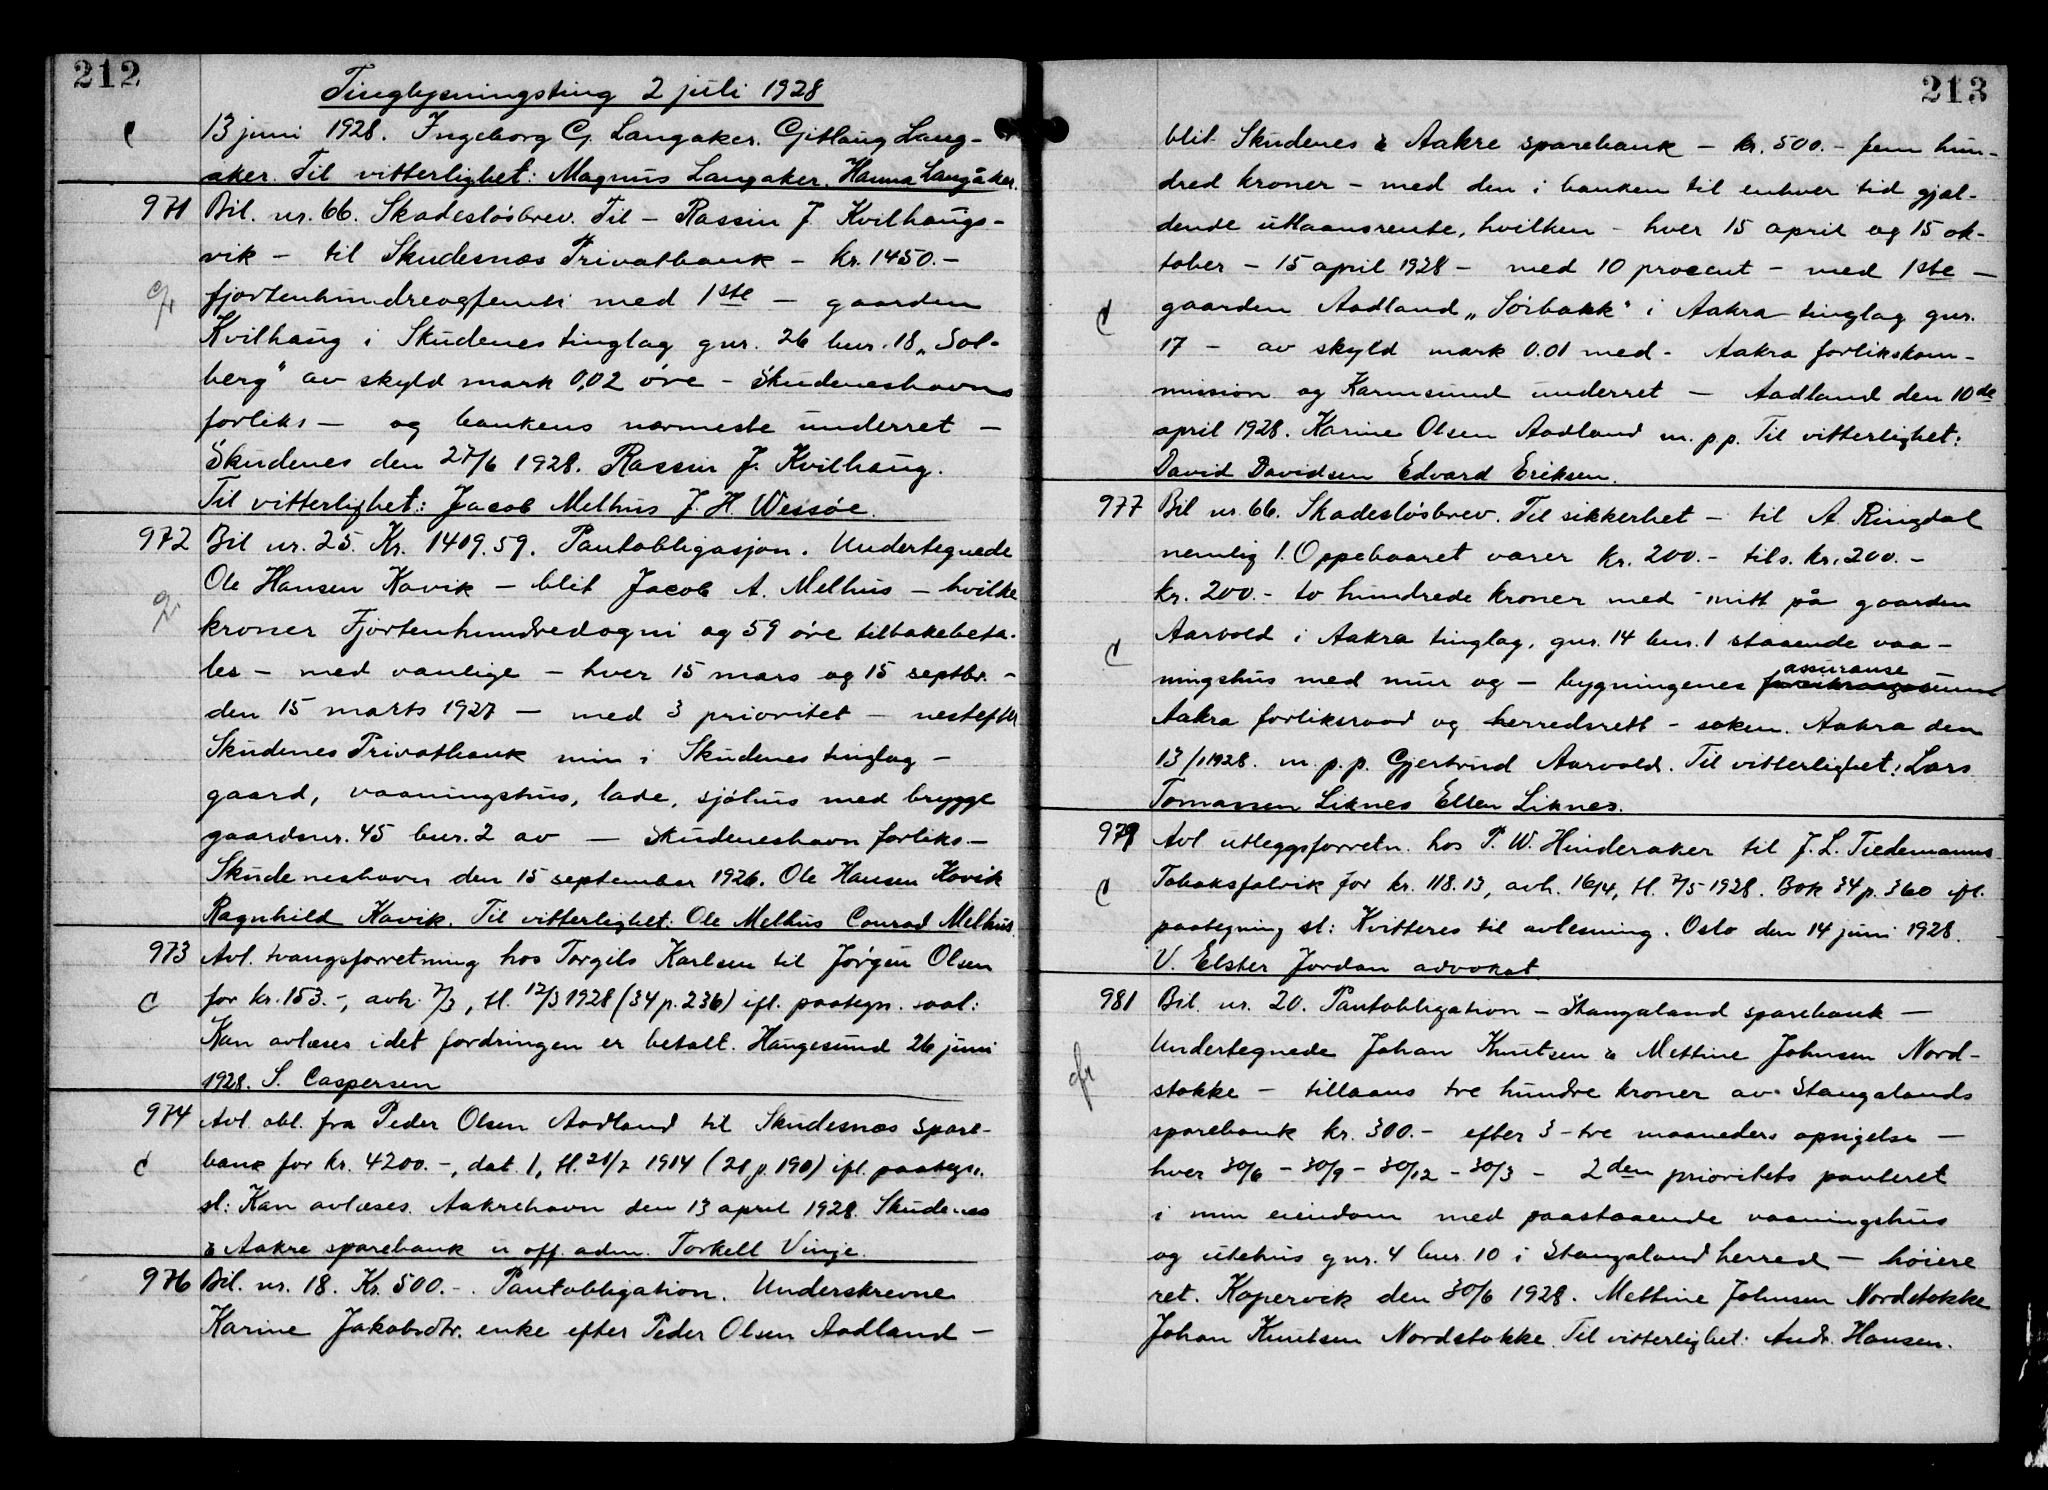 212
Tinglysningsting 2 juli 1928
13 juni 1928. Ingeborg G. Langaker. Gitlaug Lang-
aker. Til vitterlighet: Magnus Langaker. Hanna Langåker.
971 Bil. nr. 66. Skadesløsbrev. Til – Rassin J. Kvilhaugs-
vik – til Skudesnæs Privatbank – kr. 1450.–
fjortenhundreogfemti med 1ste – gaarden
Kvilhaug i Skudenes tinglag gnr. 26 bnr. 18 „Sol-
berg" av skyld mark 0,02 øre – Skudeneshavns
forliks – og bankens nærmeste underret –
Skudenes den 27/6 1928. Rassin J. Kvilhaug.
Til vitterlighet: Jacob Melhus J. H. Wessøe.
972 Bil nr. 25. Kr. 1409.59. Pantobligasjon. Undertegnede
Ole Hansen Kavik – blit Jacob A. Melhus – hvilke
kroner Fjortenhundredogni og 59 øre tilbakebeta-
les – med vanlige – hver 15 mars og 15 septbr. –
den 15 marts 1927 – med 3 prioritet – nestefter
Skudenes Privatbank min i Skudenes tinglag –
gaard, vaaningshus, lade, sjøhus med brygge
gaardsnr. 45 bnr. 2 av – Skudeneshavn forliks –
Skudeneshavn den 15 september 1926. Ole Hansen Kavik
Ragnhild Kavik. Til vitterlighet: Ole Melhus Conrad Melhus.
973 Avl. tvangsforretning hos Torgils Karlsen til Jørgen Olsen
for kr. 153.–, avh. 7/3, tl. 12/3 1928 (34 p. 236) ifl. paategn. saal:
Kan avlæses idet fordringen er betalt. Haugesund 26 juni
1928. S. Caspersen
974 Avl. obl. fra Peder Olsen Aadland til Skudesnæs spare-
bank for kr. 4200.–, dat. 1, tl. 21/2 1914 (21 p. 190) ifl. paategn.
sl: Kan avlæses. Aakrehavn den 13 april 1928. Skudenes
& Aakre sparebank u. off. adm. Torkell Vinje.
976 Bil. nr. 18. Kr. 500.–. Pantobligation. Underskrevne
Karine Jakobsdtr. enke efter Peder Olsen Aadland –
213
blit Skudenes & Aakre sparebank – kr. 500.– fem hun-
dred kroner – med den i banken til enhver tid gjæl-
dende utlaansrente, hvilken – hver 15 april og 15 ok-
tober – 15 april 1928 – med 10 procent – med 1ste –
gaarden Aadland „Sørbakk" i Aakra tinglag gnr.
17 – av skyld mark 0.01 med – Aakra forlikskom-
mission og Karmsund underret – Aadland den 10de
april 1928. Karine Olsen Aadland m. p. p. Til vitterlighet:
David Davidsen Edvard Eriksen.
977 Bil nr. 66. Skadesløsbrev. Til sikkerhet – til A. Ringdal
nemlig 1. Oppebaaret varer kr. 200.– tils. kr. 200.–
kr. 200.– to hundrede kroner med – mitt på gaarden
Aarvold i Aakra tinglag, gnr. 14 bnr. 1 staaende vaa-
ningshus med mur og – bygningenes assuranse
Aakra forliksraad og herredsrett – saken. Aakra den
13/1 1928. m. p. p. Gjertrud Aarvold. Til vitterlighet: Lars
Tomassen Liknes Ellen Liknes.
979 Avl utleggsforretn. hos P. W. Hinderaker til J. L. Tiedemanns
Tobaksfabrik for kr. 118.13, avh. 16/4, tl. 7/5 1928. Bok 34 p. 360 ifl.
paategning sl: Kvitteres til avlesning. Oslo den 14 juni 1928.
V. Elster Jordan advokat.
981 Bil. nr. 20. Pantobligation – Stangaland sparebank –
Undertegnede Johan Knutsen & Mettine Johnsen Nord-
stokke – tillaans tre hundre kroner av Stangalands
sparebank kr. 300.– efter 3 – tre maaneders opsigelse –
hver 30/6 – 30/9 – 30/12 – 30/3 – 2den prioritets panteret
i min eiendom med paastaaende vaaningshus
og utehus gnr. 4 bnr. 10 i Stangaland herred – høiere
ret. Kopervik den 30/6 1928. Mettine Johnsen Nordstokke
Johan Knutsen Nordstokke. Til vitterlighet: Andr. Hansen.